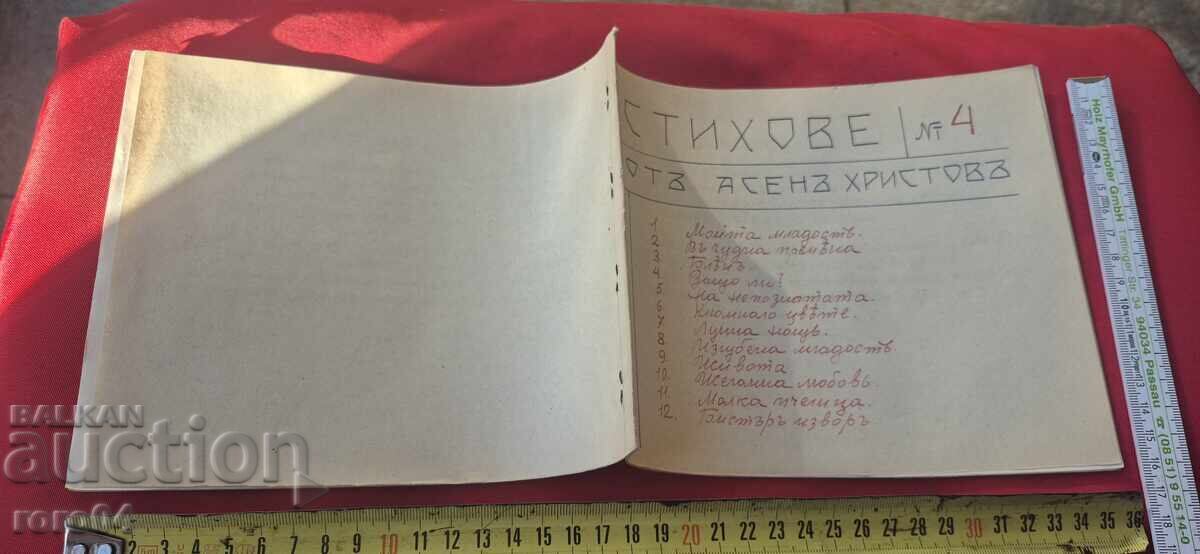 СТИХОВЕ № 4
ОТЪ АСЕНЪ ХРИСТОВЪ
1. Мойта младость.
2. Въ чудна
3. Блѣнъ.
4. Защо ли?
5. На непознатата.
6. цвѣте.
7. Лунна нощь.
8. Изгубена младость.
9. Живота
10. Желанна любовь.
11. Малка пчелица.
12. Бистъръ изворъ
BALKAN
auction
roro64
Holz Mayrhofer GmbH Tittlinger Str. 34 94034 Passau ☎ (08 51) 9 55 14-0
2 3 4 5 6 7 8 9 10 11 12 13 14 15 16 17 18 19 20 21 22 23 24 25 26 27 28 29 30 31 32 33 34 35 36